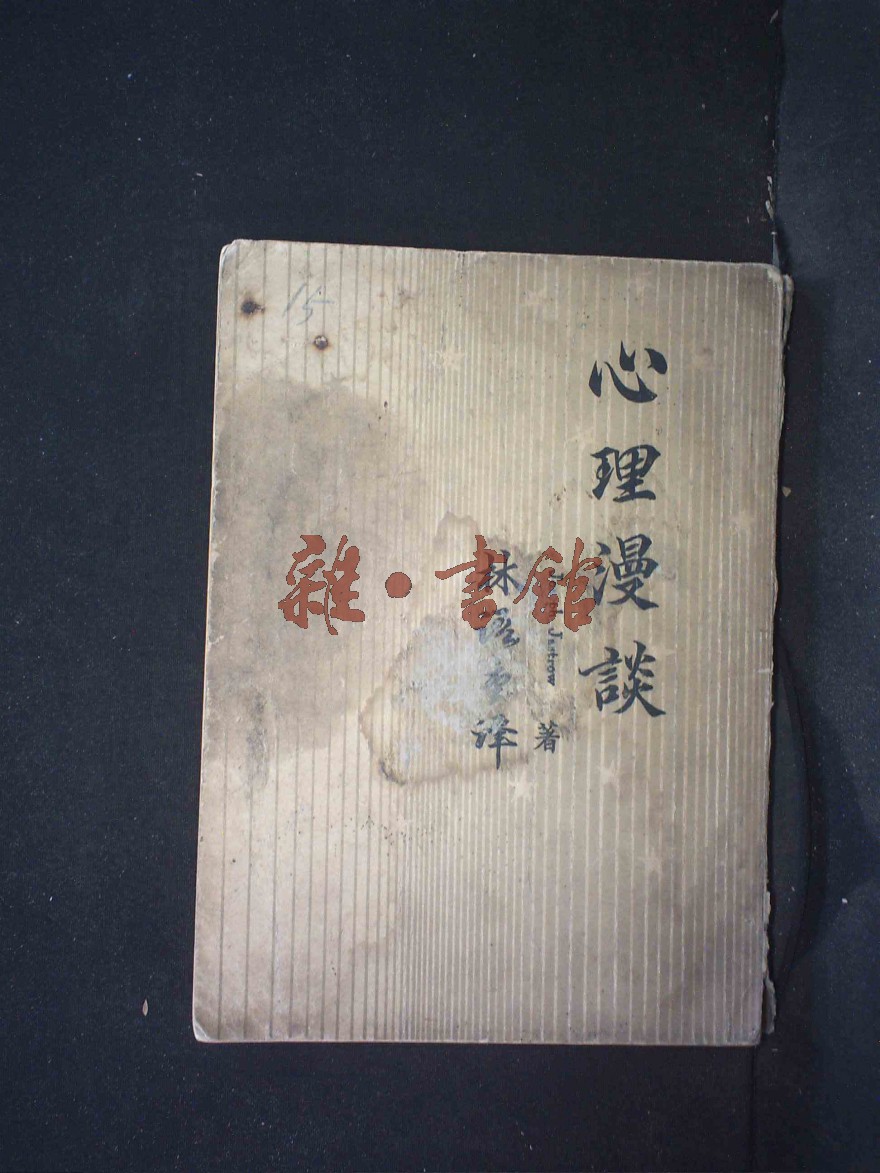 心理漫談
Jastrow 著
林語堂譯
15
雜·書館